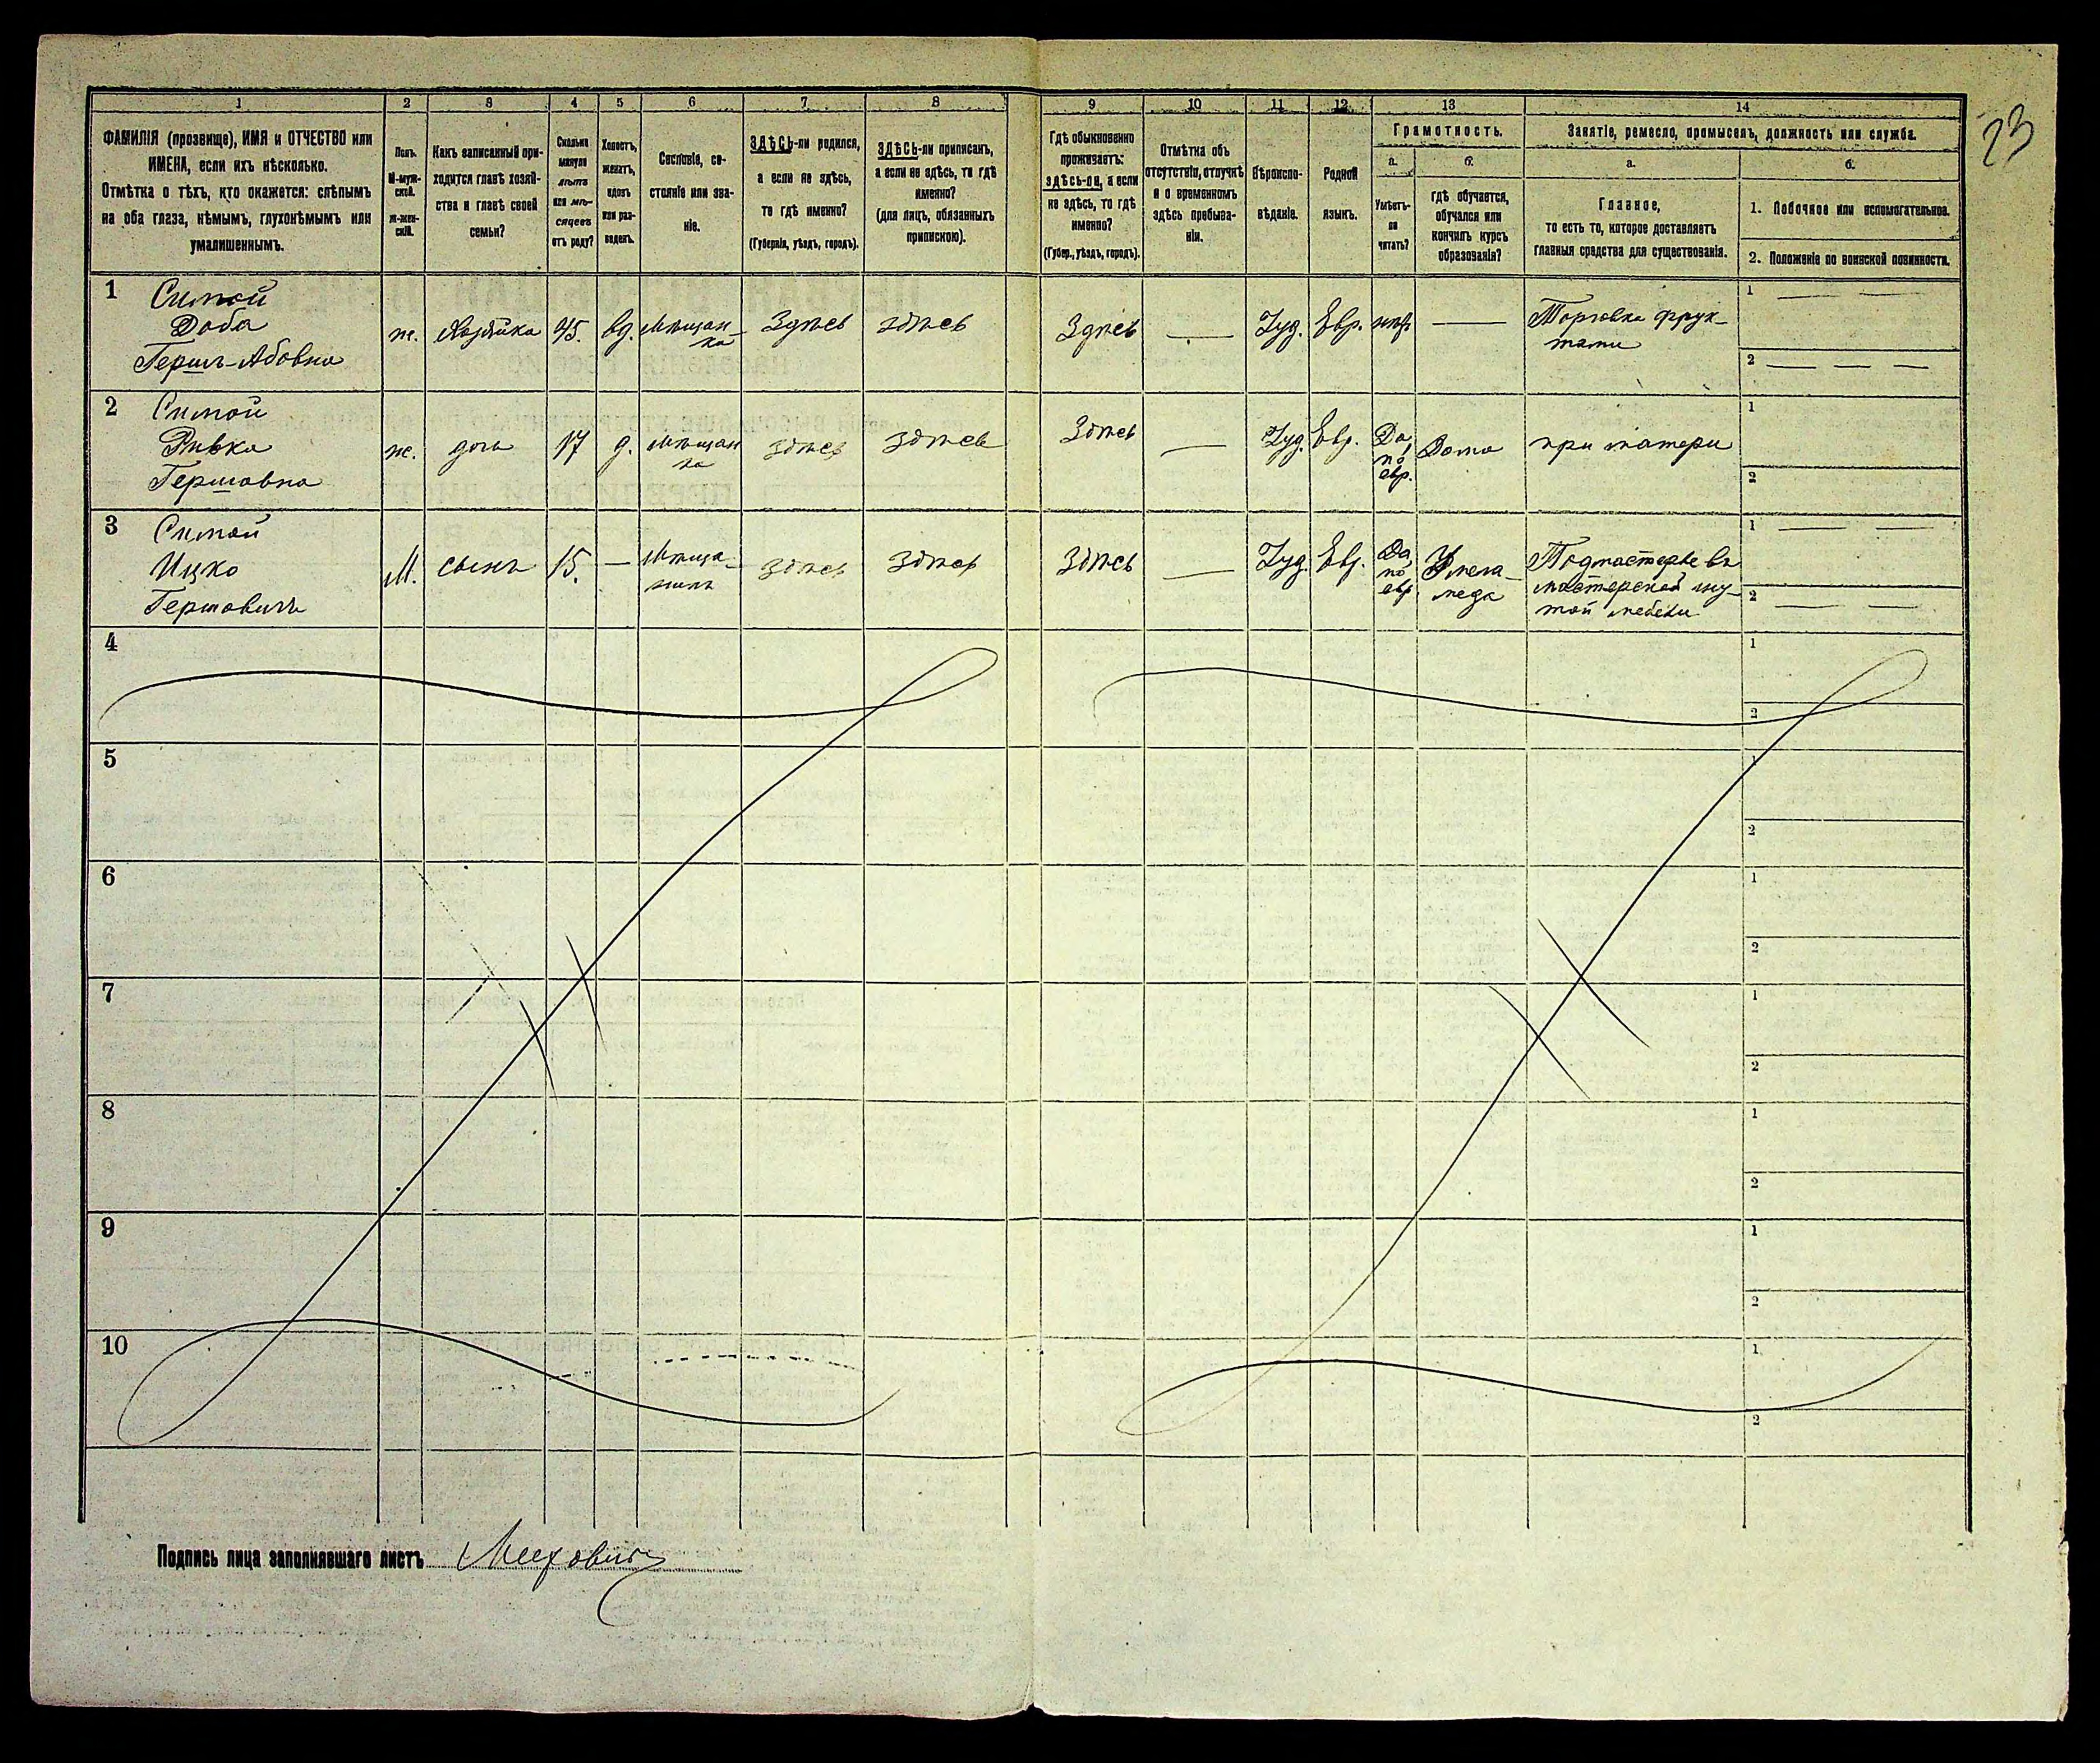 23
1 2 3 4 5 6 7 8 9 10 11 12 13 14
ФАМИЛІЯ (прозвище), ИМЯ и ОТЧЕСТВО или
ИМЕНА, если ихъ нѣсколько.
Отмѣтка о тѣхъ, кто окажется: слѣпымъ
на оба глаза, нѣмымъ, глухонѣмымъ или
умалишеннымъ.
Полъ.
М-муж-
ской.
Ж-жен-
скій.
Какъ записанный при-
ходится главѣ хозяй-
ства и главѣ своей
семьи?
Сколько
минуло
лѣтъ
или мѣ-
сяцевъ
отъ роду?
Холостъ,
женатъ,
вдовъ
или раз-
веденъ.
Сословіе, со-
стояніе или зва-
ніе.
ЗДѢСЬ-ли родился,
а если не здѣсь,
то гдѣ именно?
(Губернія, уѣздъ, городъ).
ЗДѢСЬ-ли приписанъ,
а если не здѣсь, то гдѣ
именно?
(для лицъ, обязанныхъ
припискою).
Гдѣ обыкновенно
проживаетъ:
здѣсь-ли, а если
не здѣсь, то гдѣ
именно?
(Губер., уѣздъ, городъ).
Отмѣтка объ
отсутствіи, отлучкѣ
и о временномъ
здѣсь пребыва-
ніи.
Вѣроиспо-
вѣданіе.
Родной
языкъ.
Грамотность.
а. б.
Умѣетъ-
ли
читать?
гдѣ обучается,
обучался или
кончилъ курсъ
образованія?
Занятіе, ремесло, промыселъ, должность или служба.
а. б.
Главное,
то есть то, которое доставляетъ
главныя средства для существованія.
1. Побочное или вспомогательное.
2. Положеніе по воинской повинности.
1 Ситой
Доба
Гершъ-Абовна
ж. Хозяйка 45. вд. Мѣщан-
ка
Здѣсь здѣсь Здѣсь — Іуд. Евр. нѣтъ — Торговка фрук-
тами
1 — —
2 — — —
2 Ситой
Ривка
Гершовна
ж. дочь 17 д. мѣщан
ка
здѣсь здѣсь Здѣсь — Іуд. Евр. Да,
по
евр.
Дома при матери
1
2
3 Ситой
Ицко
Гершовичъ
М. сынъ 15. — Мѣща-
нинъ
здѣсь здѣсь Здѣсь — Іуд. Евр. Да,
по
евр.
У мела-
меда
Подмастерье въ
мастерской гну-
той мебели
1 — —
2 — —
4
1
2
5
1
2
6
1
2
7
1
2
8
1
2
9
1
2
10
1
2
Подпись лица заполнявшаго листъ